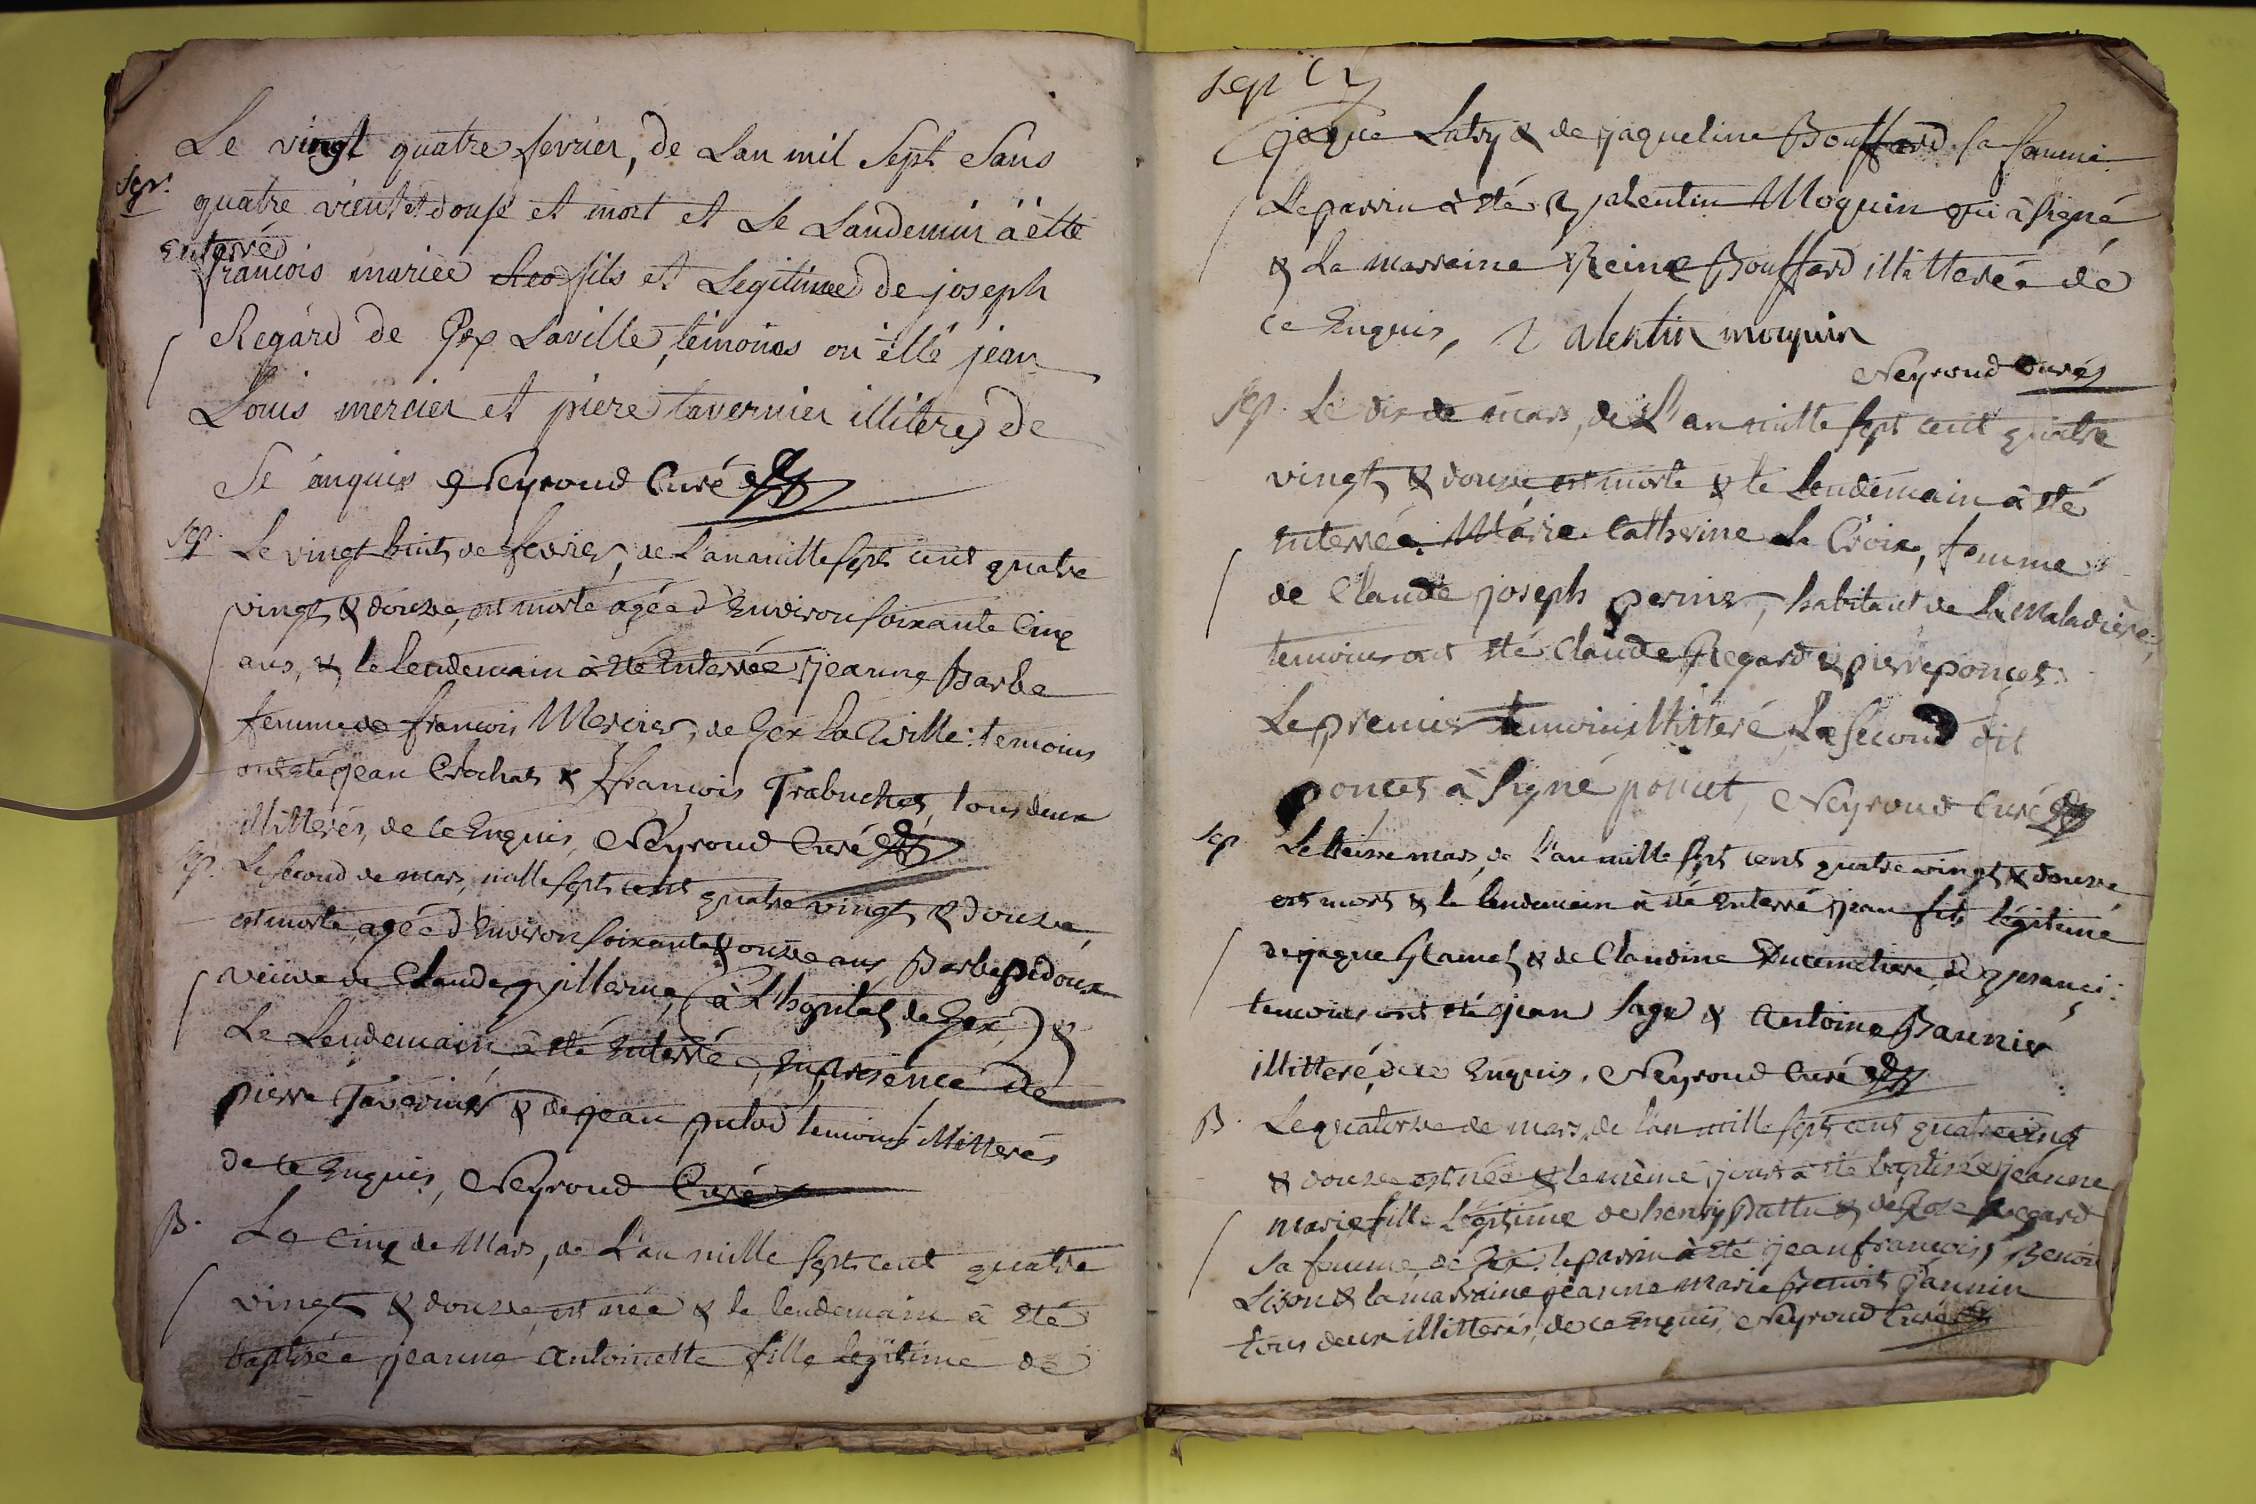 Le vingt quatre fevrier, de Lan mil Sept Sans
Sep.
quatre vient et douse et mort et Le Landemin à étte
enterré
francois mariee fils et Legitime de joseph
Regard de Gex Laville, temoins on étté jean
Louis mercier et piere tavernier illiteres de
Se anquis Neyroud Curé
Sep. Le vingt huit de fevrier, de L'an mille sept cent quatre
vingt & douze, est morte agée d'Environ soixante Cinq
ans, & le lendemain à été Enterrée jeanne Barbe
femme de francois Mercier, de Gex La Ville: temoins
ont été jean Crochat & francois Trabuchet, tous deux
illitterés, de ce Enquis, Neyroud Curé
Sep. Le second de mars, mille sept cent quatre vingt & douze,
est morte agée d'Environ soixante & onze ans Barbe pidoux
veuve de Claude (à L'hopital de Gex,) &
Le Lendemain à été Enterré, En presence de
pierre Tavernier & de jean temoins illitterés
de ce Enquis, Neyroud Curé
B. Le Cinq de Mars, de L'an mille sept cent quatre
vingt & douze, est née & le lendemain à été
baptisée jeanne Antoinette fille legitime de
Sep
jaque Latry & de jaqueline Bouffard sa femme
Le parrin à été valentin Moquin qui à signé
& La marraine Reine Bouffard illitterée de
ce Enquis, valentin moquin
Neyroud Curé
Sep. Le dix de mars, de L'an mille sept cent quatre
vingt & douze, est morte & le Lendemain à été
Enterrée Marie Catherine La Croix, femme
de Claude joseph perrier, habitant de La Maladière,
temoins ont été Claude Regard & pierre poncet.
Le premier temoin illitteré, Le second dit
poncet à signé poncet, Neyroud Curé
Sep Le treize mars, de L'an mille sept cent quatre vingt & douze
est mort & le lendemain à été Enterré jean fils légitime
de jaque & de Claudine Ducimetiere,
temoins ont été jean Sage & Antoine
illitteré, de ce Enquis, Neyroud Curé
B. Le quatorze de mars, de l'an mille sept cent quatre vingt
& douze est née & le même jour à été baptisée jeanne
marie fille Légitime de henry & de Rose Regard
sa femme, de Gex, le parrin à été jean francois Benoit
Lison & la marraine jeanne marie Benoit jannin
tous deux illitterés, de ce Enquis, Neyroud Curé